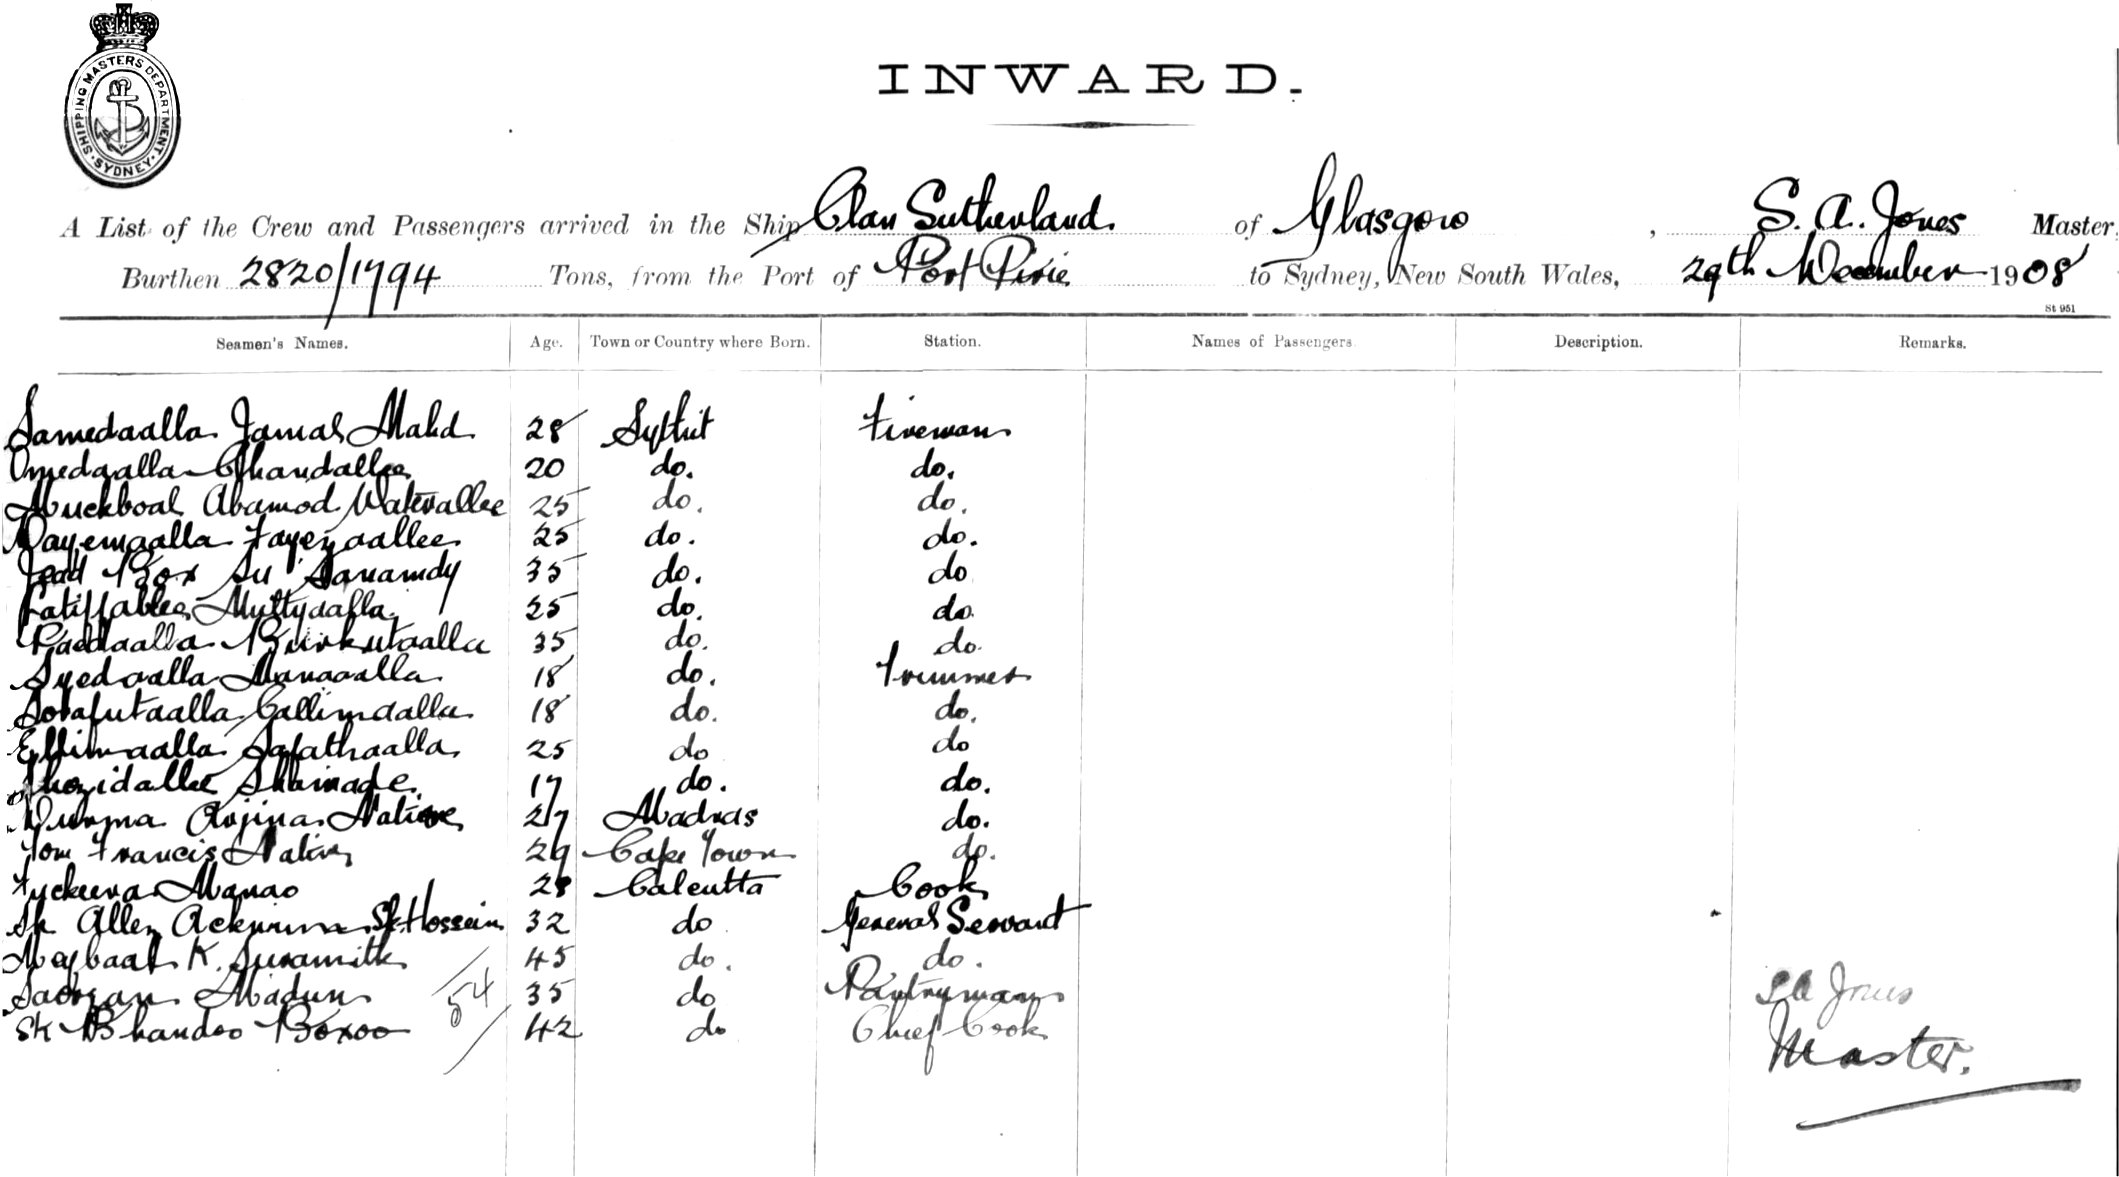 SHIPPING MASTERS DEPARTMENT. SYDNEY.
INWARD.
A List of the Crew and Passengers arrived in the Ship Clan Sutherland of Glasgow, S. A. Jones Master,
Burthen 2820/1794 Tons, from the Port of Port Pirie to Sydney, New South Wales, 29th December 1908
St 951
Seamen's Names. Age. Town or Country where Born. Station. Names of Passengers. Description. Remarks.
Samedaalla Jamal Mahd 28 Sylhit Fireman
Omedaalla Chandallee 20 do. do.
Muckboal Abamod Waterallee 25 do. do.
Dayemaalla Fayezaallee 25 do. do.
Box Su Sanamdy 35 do. do
Latiffallee Muttyaalla 25 do. do.
Raedaalla Burkutaalla 35 do. do.
Syedaalla Manaaalla 18 do. Trimmer
Sorafutaalla Callimaalla 18 do. do.
Ellimaalla Safathaalla 25 do do
Shozidallee 17 do. do.
Native 27 Madras do.
Tom Francis Native 29 Cape Town do.
Fyckeera Manao 28 Calcutta Cook
Sk Allee Sk. Hossein 32 do General Servant
K. 45 do. do.
Madun 35 do Pantryman
Sk Bhandoo Boxoo 42 do Chief Cook
54
S A Jones
Master.